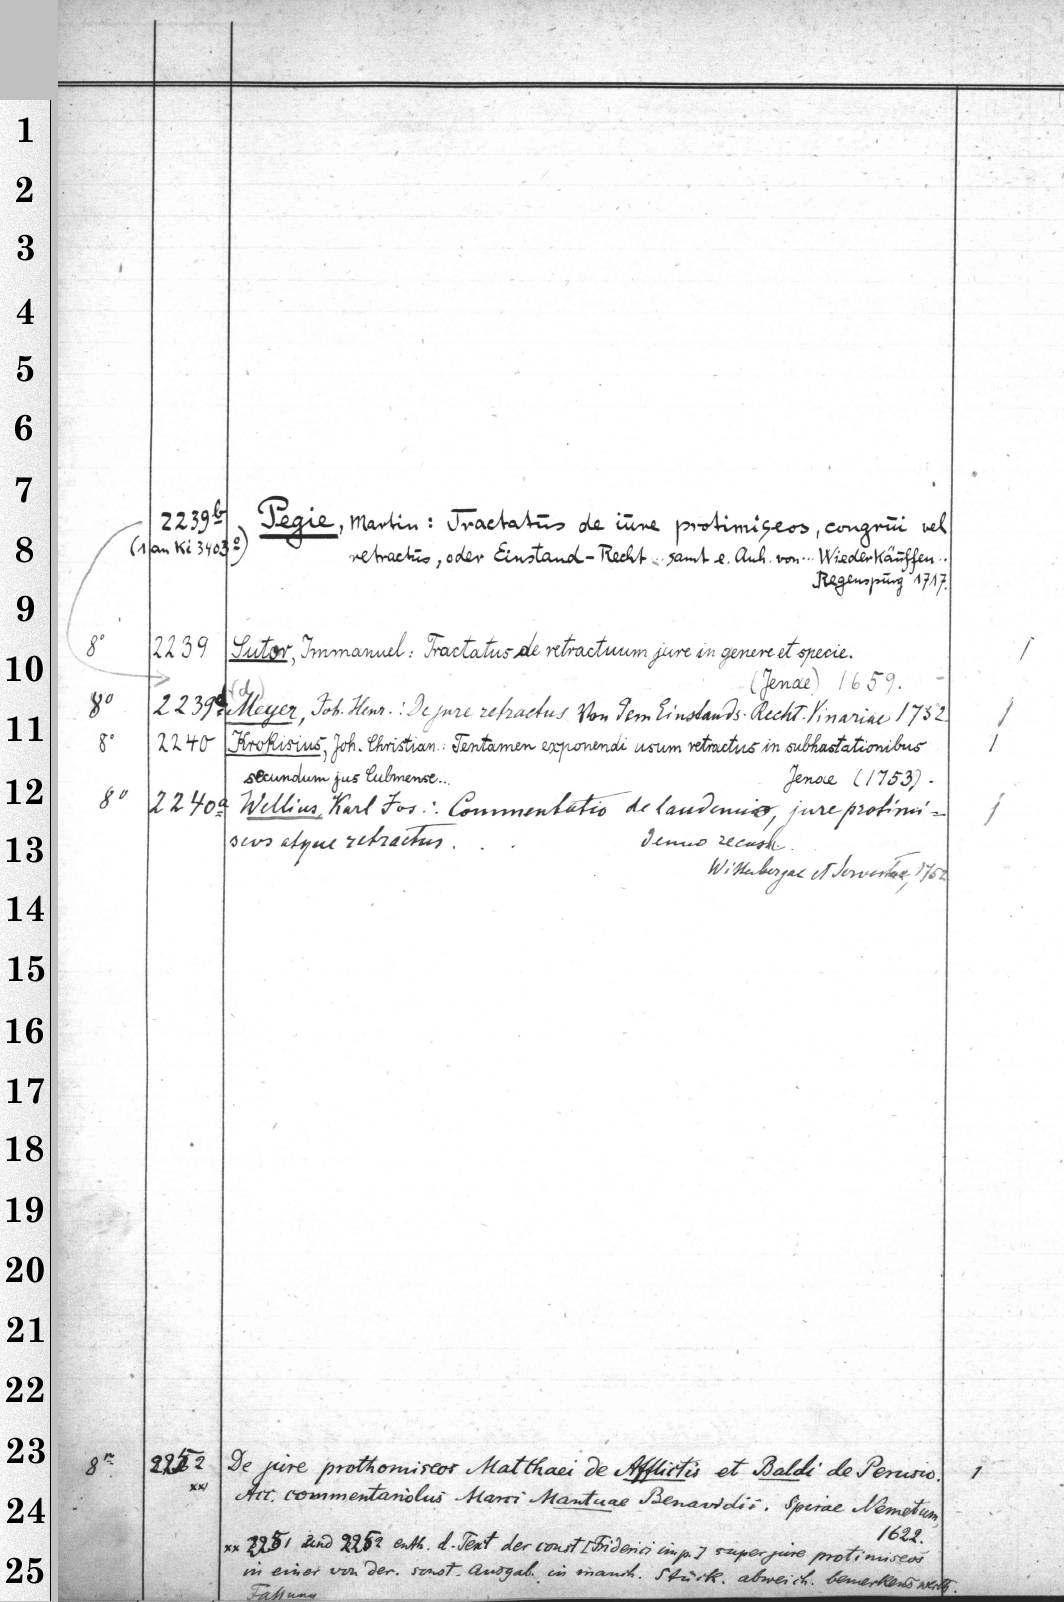 1
2
3
4
5
6
7
2239b Pegie, Martin: Tractatūs de iūre protimiseos, congrūi vel
8
(1 an Ki 3403a) retractūs, oder Einstand-Recht .. samt e. Anh. von... Wiederkäuffen ..
Regenspūrg 1717.
9
8° 2239 Sutor, Immanuel: Tractatus de retractuum jure in genere et specie. 1
10
(Jenae) 1659.
8° 2239d (d) Meyer, Joh. Henr.: De jure retractus Von dem Einstands-Recht. Vinariae 1732 1
11
8° 2240 Krokisius, Joh. Christian: Tentamen exponendi usum retractus in subhastationibus 1
secundum jus Culmense... Jenae (1753).
12
8° 2240a Wellius, Karl Jos.: Commentatio de laudemio, jure protimi= 1
13
seos atque retractus. . . Denuo recusa.
Wittenbergae et Servestae, 1752
14
15
16
17
18
19
20
21
22
23
8° 2252 De jure prothomiseos Matthaei de Afflictis et Baldi de Perusio. 1
xx Acc. commentariolus Marci Mantuae Benavidii. Spirae Nemetum,
24
1622.
xx 2251 und 2252 enth. d. Text der const [Friderici imp.] super jure protimiseos
25
in einer von der. sonst. Ausgab. in manch. Stück. abweich. bemerkenswerth.
Fassung